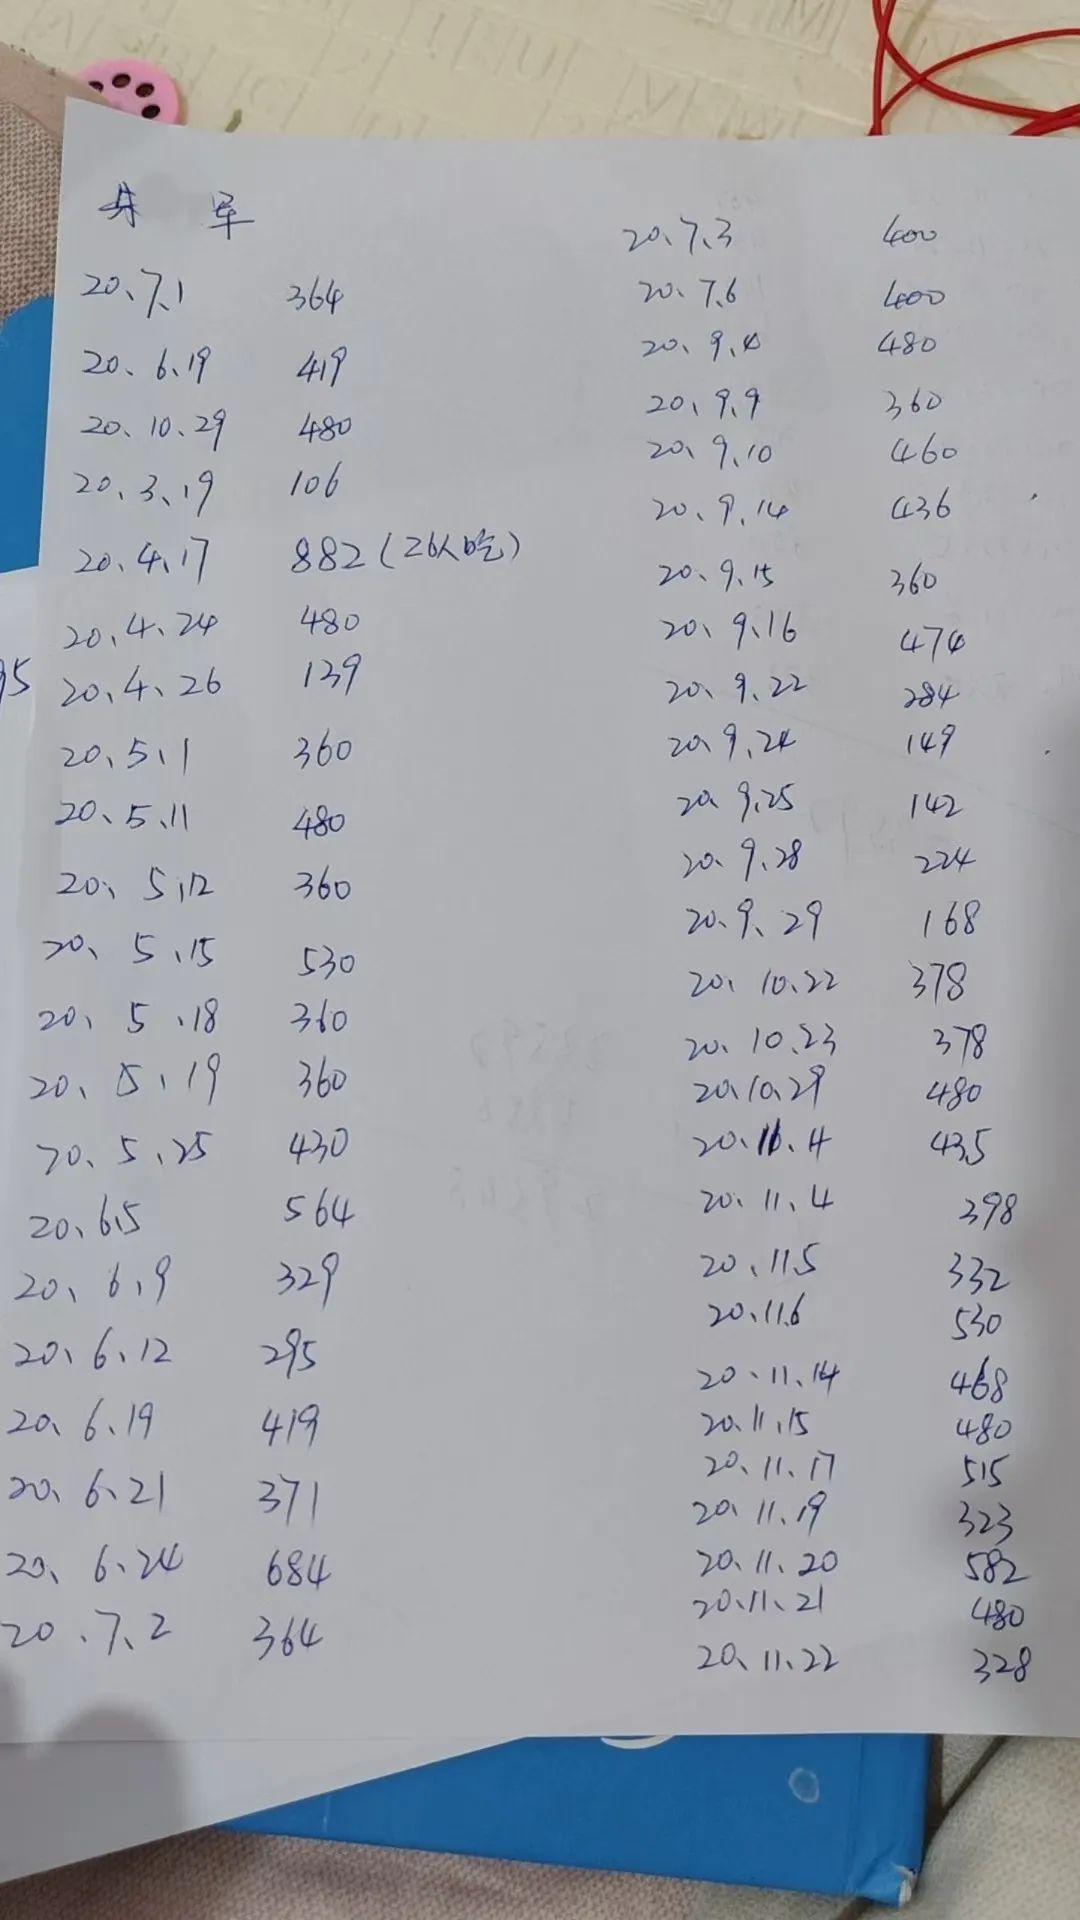 朱 军
20、7、1 364
20、6、19 419
20、10、29 480
20、3、19 106
20、4、17 882(26人吃)
20、4、24 480
20、4、26 139
20、5、1 360
20、5、11 480
20、5、12 360
20、5、15 530
20、5、18 360
20、5、19 360
20、5、25 430
20、6、5 564
20、6、9 329
20、6、12 295
20、6、19 419
20、6、21 371
20、6、24 684
20、7、2 364
20、7、3 400
20、7、6 400
20、9、4 480
20、9、9 360
20、9、10 460
20、9、14 436
20、9、15 360
20、9、16 474
20、9、22 284
20、9、24 149
20、9、25 142
20、9、28 224
20、9、29 168
20、10、22 378
20、10、23 378
20、10、29 480
20、11、4 435
20、11、4 398
20、11、5 332
20、11、6 530
20、11、14 468
20、11、15 480
20、11、17 515
20、11、19 323
20、11、20 582
20、11、21 480
20、11、22 328